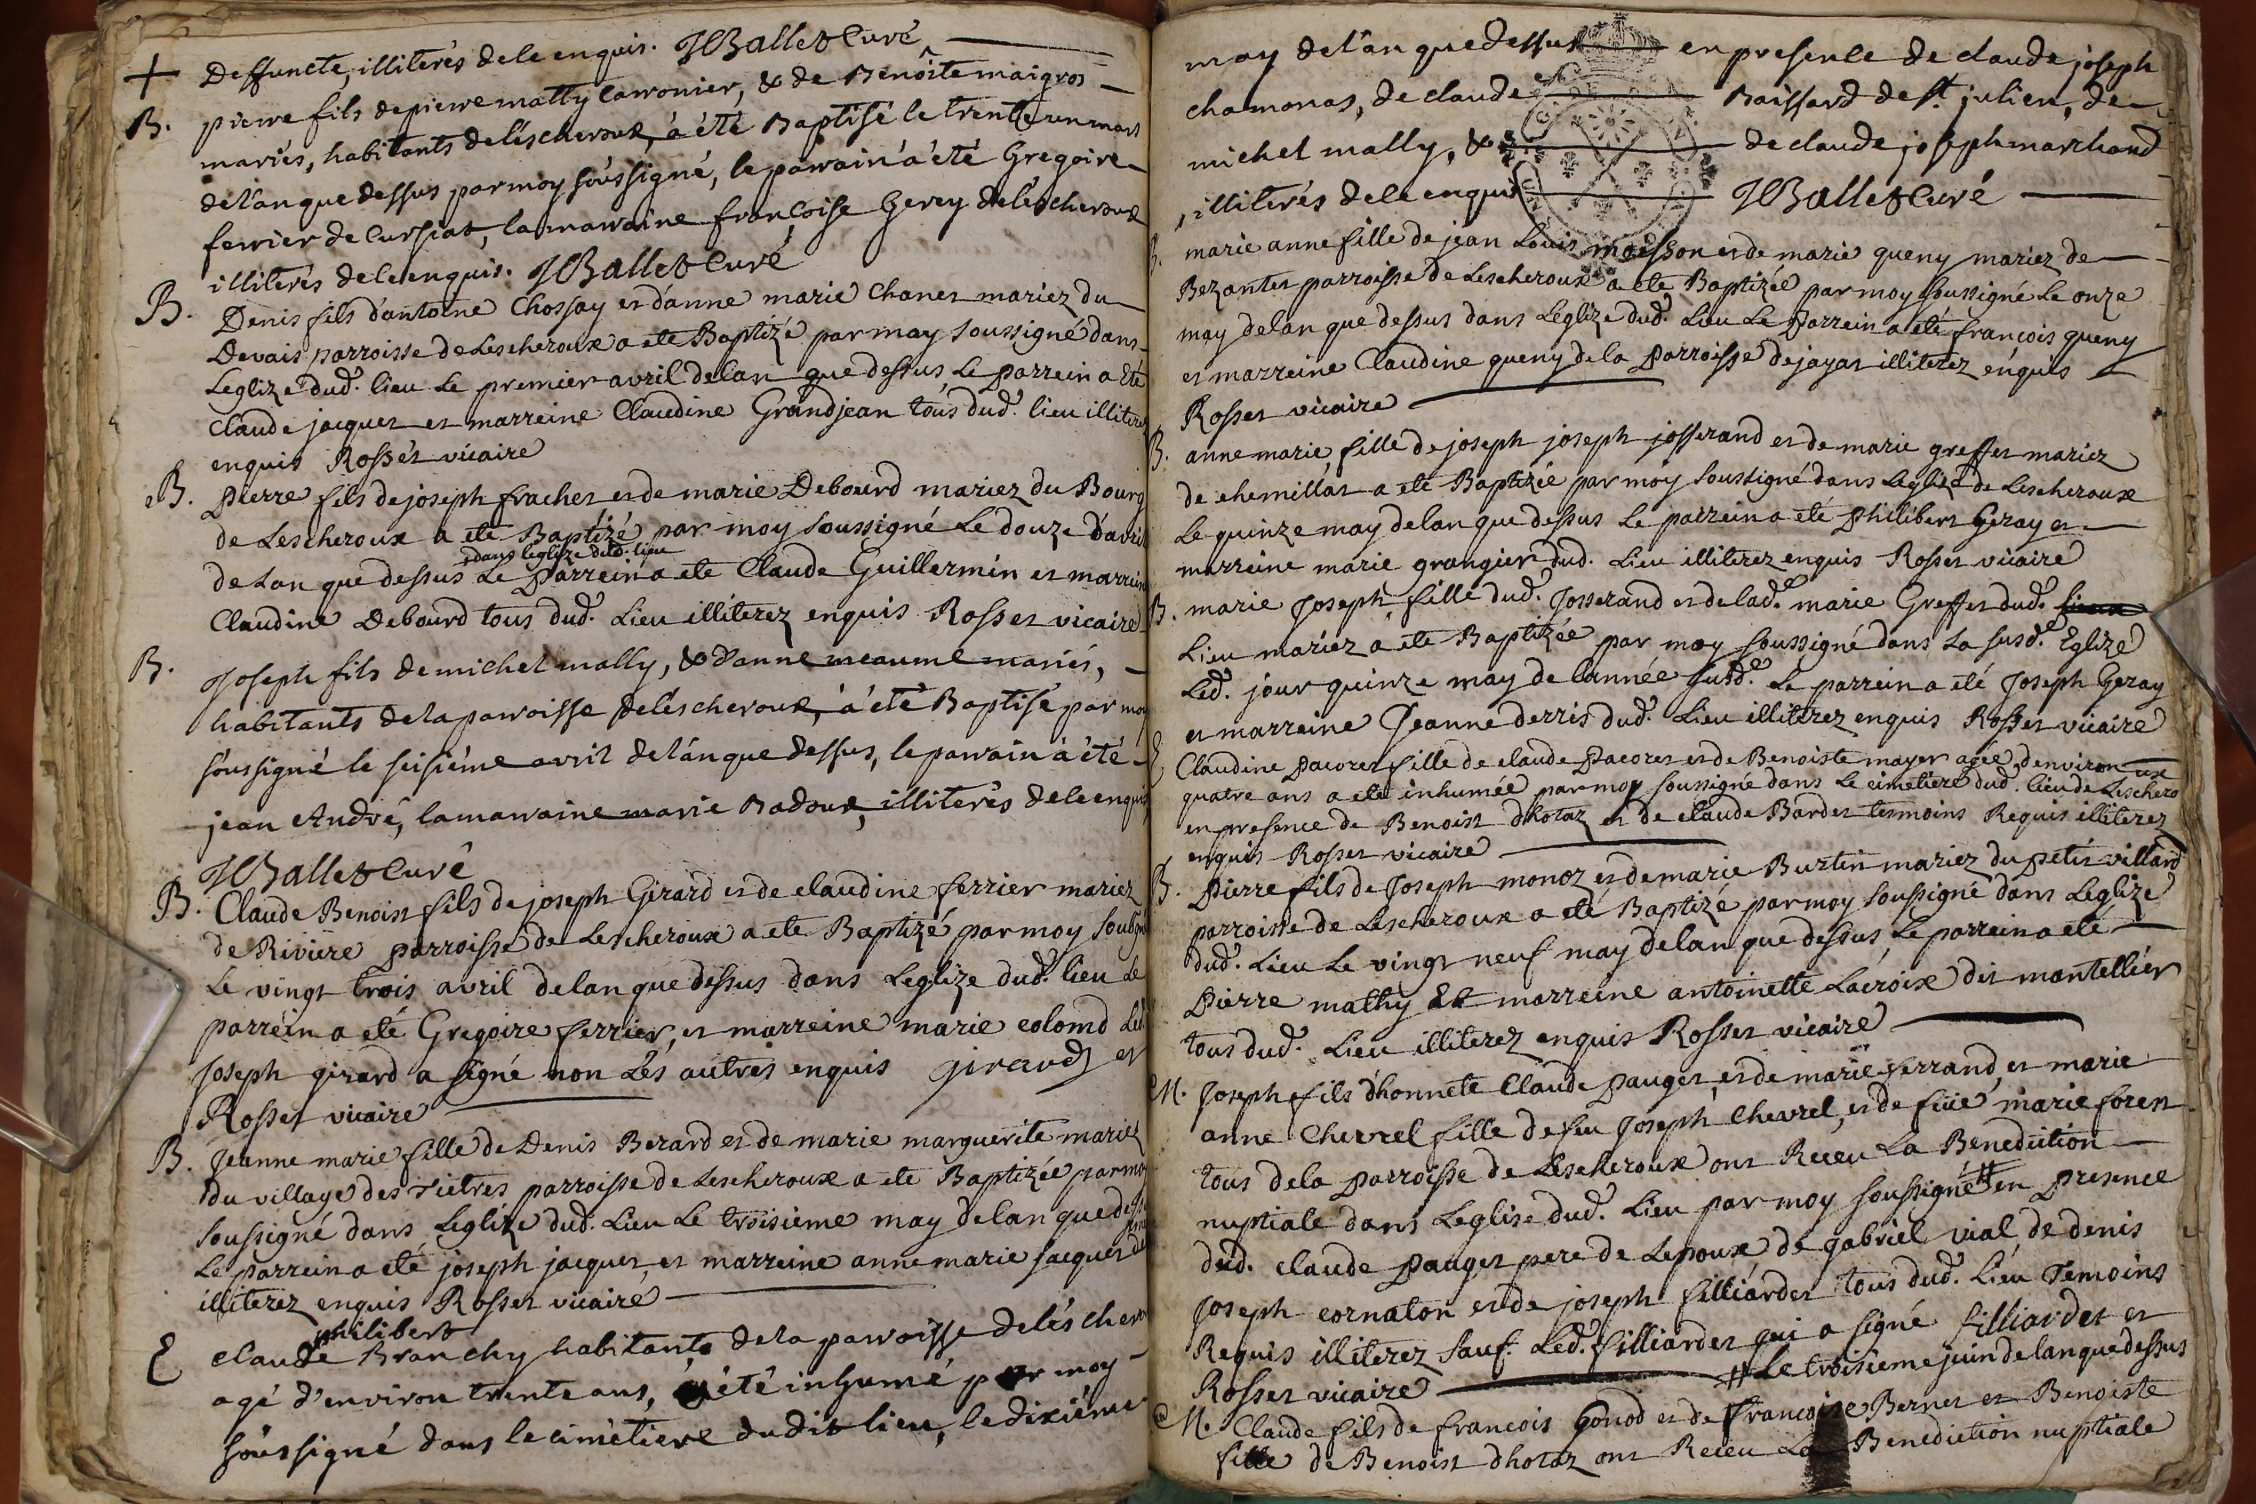 + Deffuncte, illiterés de ce enquis. JBallet Curé
B. pierre fils de pierre matty Carronier, & de Benoîte maigros
mariés, habitants de léscheroux, à été Baptisé le trente un mars
de l'ánque dessus par moy soussigné, le parrain à été Gregoire
ferrier de Cursiat, la marraine françoise Gerey de léscheroux
illiterés de ce enquis. JBallet Curé
B. Denis fils d'antoine Chossay et d'anne marie Chanet mariez du
Devais parroisse de Lescheroux a ete Baptizé par moy soussigné dans
Leglize dud. lieu Le premier avril delan que dessus Le parrein a Eté
Claude jacquet et marreine Claudine Grandjean tous dud. lieu illiterez
enquis Rosset vicaire
B. Pierre fils de joseph frachet et de marie Debourd mariez du Bourg
de Lescheroux a ete Baptizé par moy soussigné Le douze d'avril
dans leglize dud. lieu
de Lan que dessus Le Parrein a ete Claude Guillermin et marreine
Claudine Debourd tous dud. Lieu illiterez enquis Rosset vicaire
B. Joseph fils de michel mally, & d'anne meaume mariés,
habitants de la parroisse de léscheroux, à été Baptisé par moy
soussigné le seisiéme avril de l'ánque dessus, le parrain à été
jean André, la marraine marie Badoux, illiterés de ce enquis
JBallet Curé
B. Claude Benoist fils de joseph Girard et de claudine ferrier mariez
de Riviere parroisse de Lescheroux a ete Baptizé par moy soussigné
Le vingt trois avril delan que dessus dans Leglize dud. lieu Le
parrein a eté Gregoire ferrier, et marreine marie colomd Led.
joseph girard a signé non Lés autres enquis girard et
Rosset vicaire
B. Jeanne marie fille de Denis Berard et de marie marguerite mariez
du village des Tietres parroisse de Lescheroux a ete Baptizée par moy
soussigné dans Leglize dud. Lieu Le troisieme may delan que dessus
Le parrein a eté joseph jacquet, et marreine anne marie jacquet
illiterez enquis Rosset vicaire
philibert
E Claude Branchy habitant de la parroisse de léscheroux
agé d'environ trente ans, à été inhumé par moy
soussigné dans le cimétiere dudit lieu, le dixiéme
may de l'an que dessus en presence de claude joseph
chamonas, de claude Baissard de st. julien, de
michel mally, & de claude joseph marchand
, illiterés de ce enquis JBallet Curé
B. marie anne fille de jean Louis moisson et de marie queny mariez de
Bezantes parroisse de Lescheroux a ete Baptizée par moy soussigné Le onze
may delan que dessus dans Leglize dud. Lieu Le Parrein a eté françois queny
et marreine Claudine queny de la Parroisse de jayat illiterez enquis
Rosset vicaire
B. anne marie fille de joseph joseph josserand et de marie greffet mariez
de chemillat a ete Baptizée par moy soussigné dans Leglize de Lescheroux
Le quinze may delan que dessus Le parrein a eté Philibert Geray et
marreine marie grangier dud. Lieu illiterez enquis Rosset vicaire
B. marie Joseph fille dud. Josserand et de lad. marie Greffet dud.
Lieu mariez a ete Baptizée par moy soussigné dans La susd. Eglize
Led. jour quinze may de lannée susd. Le parrein a eté Joseph Geray
et marreine Jeanne derris dud. Lieu illiterez enquis Rosset vicaire
E Claudine Pacoret fille de claude Pacoret et de Benoiste mayer agée denviron
quatre ans a ete inhumée par moy soussigné dans Le cimetiere dud. lieu de Lescheroux
en presence de Benoist dhotaz et de claude Bardet tesmoins Requis illiterez
enquis Rosset vicaire
B. Pierre fils de Joseph monoz et de marie Burtin mariez du petit villard
parroisse de Lescheroux a eté Baptizé par moy soussigné dans Leglize
dud. Lieu Le vingt neuf may delan que dessus Le parrein a eté
Pierre mathy Et marreine antoinette Lacroix dit mantellier
tous dud. Lieu illiterez enquis Rosset vicaire
M. Joseph fils d'honnete Claude Pauget, et de marie ferrand, et marie
anne Chevrel fille de feu Joseph Chevrel, et de füe marie forest
tous de la parroisse de Lescheroux ont Receu La Benediction
nuptiale dans Leglise dud. Lieu par moy soussigné # en presence
dud. claude Pauget pere de Lepoux de gabriel vial de denis
Joseph cornaton et de joseph filliardet tous dud. Lieu Temoins
Requis illiterez sauf. Led. filliardet qui a signé filliardet et
Rosset vicaire # Le troisieme juin delan que dessus
M. Claude fils de françois Gonod et de françoise Bernet et Benoiste
fille de Benoist dhotaz ont Receu La Benediction nuptiale